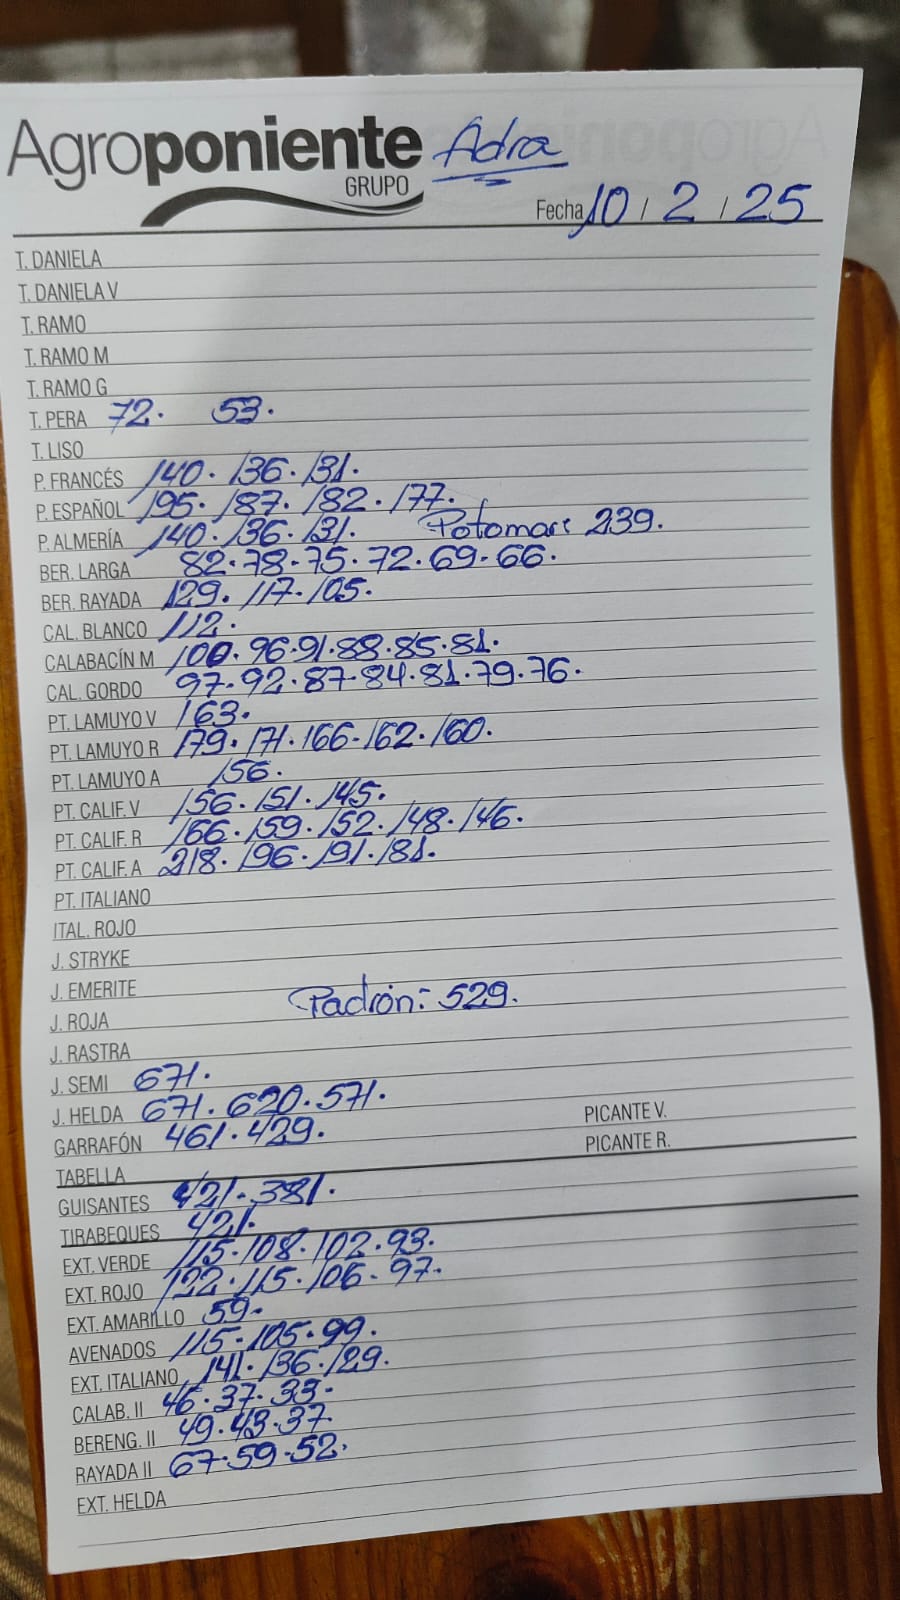 Agroponiente Adra
GRUPO
Fecha 10 / 2 / 25
T. DANIELA
T. DANIELA V
T. RAMO
T. RAMO M
T. RAMO G
T. PERA 72. 53.
T. LISO
P. FRANCÉS 140. 136. 131.
P. ESPAÑOL 195. 187. 182. 177.
P. ALMERÍA 140. 136. 131. Potomac: 239.
BER. LARGA 82. 78. 75. 72. 69. 66.
BER. RAYADA 129. 117. 105.
CAL. BLANCO 112.
CALABACÍN M 100. 96. 91. 88. 85. 81.
CAL. GORDO 97. 92. 87. 84. 81. 79. 76.
PT. LAMUYO V 163.
PT. LAMUYO R 179. 171. 166. 162. 160.
PT. LAMUYO A 156.
PT. CALIF. V 156. 151. 145.
PT. CALIF. R 166. 159. 152. 148. 146.
PT. CALIF. A 218. 196. 191. 181.
PT. ITALIANO
ITAL. ROJO
J. STRYKE
J. EMERITE
Padrón: 529.
J. ROJA
J. RASTRA
J. SEMI 671.
J. HELDA 671. 620. 571. PICANTE V.
GARRAFÓN 461. 429. PICANTE R.
TABELLA
GUISANTES 421. 381.
TIRABEQUES 421.
EXT. VERDE 115. 108. 102. 93.
EXT. ROJO 122. 115. 106. 97.
EXT. AMARILLO 59.
AVENADOS 115. 105. 99.
EXT. ITALIANO 141. 136. 129.
CALAB. II 46. 37. 33.
BERENG. II 49. 43. 37.
RAYADA II 67. 59. 52.
EXT. HELDA